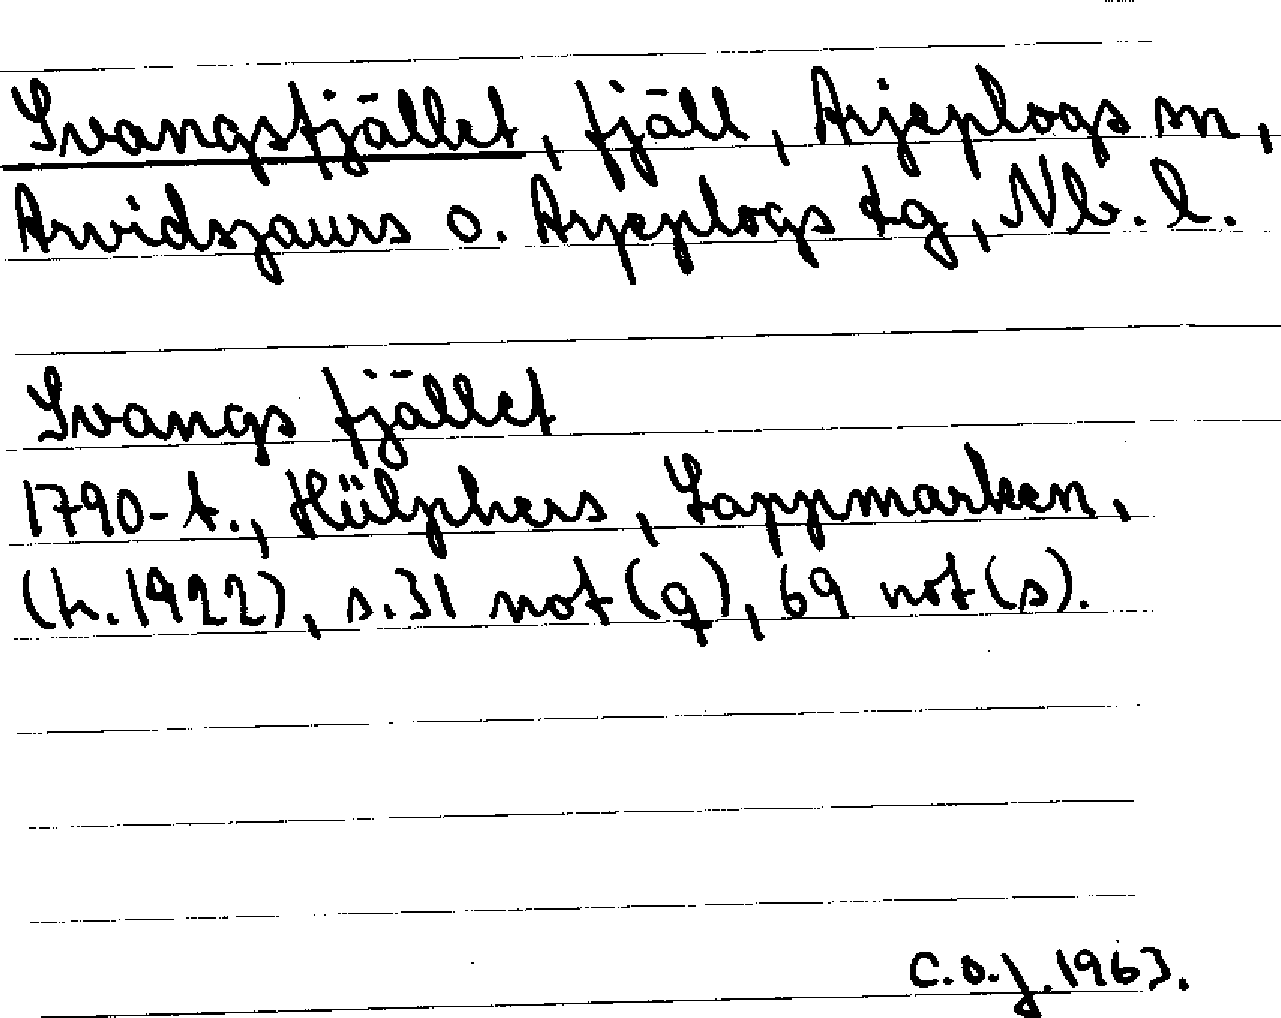 Svangsfjället, fjäll, Arjeplogs sn,
Arvidsjaurs o. Arjeplogs tg, Nb. l.
Svangs fjället
1790-t., Hülphers, Lappmarken,
(h. 1922), s. 31 not (q), 69 not (s).
C.O.J. 1963.